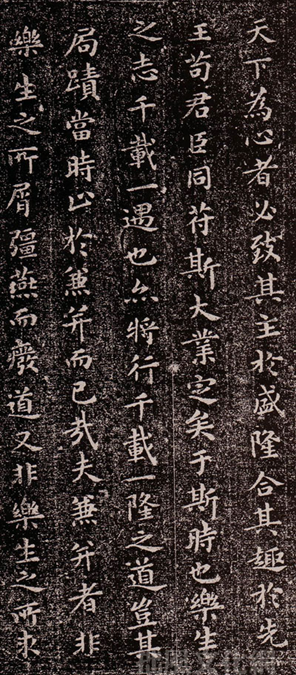 天下為心者必致其主於盛隆合其趣於先
王苟君臣同苻斯大業定矣于斯時也樂生
之志千載一遇也亦將行千載一隆之道豈其
局蹟當時止於兼并而已哉夫兼并者非
樂生之所屑彊燕而廢道又非樂生之所求